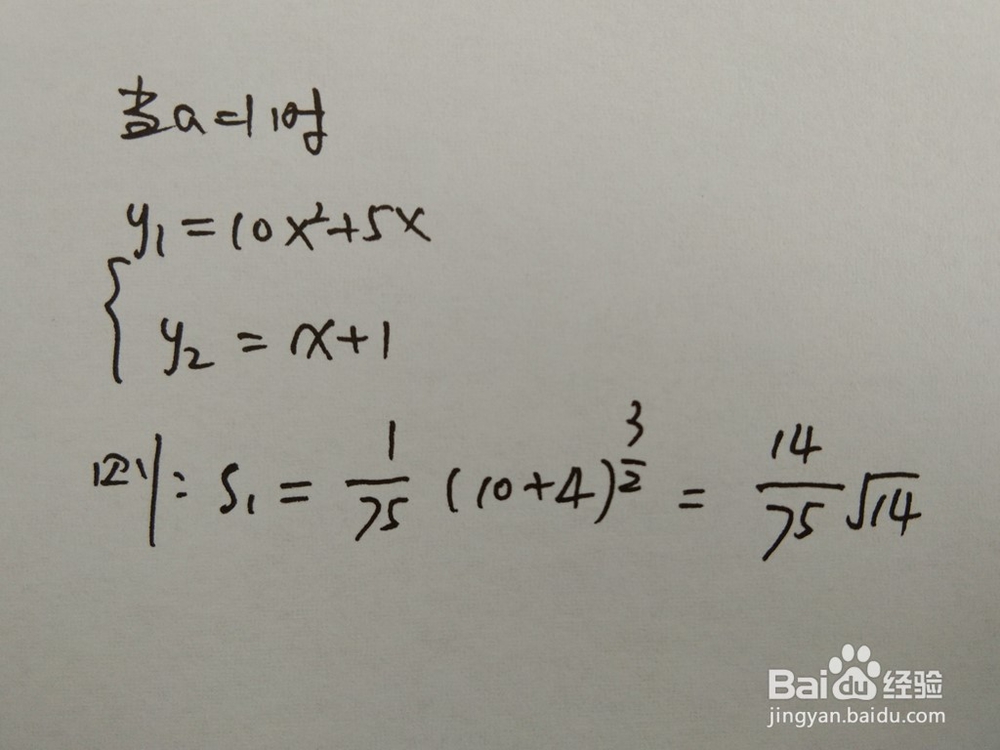 当a=1时
y₁=10x²+5x
{ y₂=x+1
则: S₁ = 1/75 (10+4)^(3/2) = 14/75 √14
Bai du 经验
jingyan.baidu.com